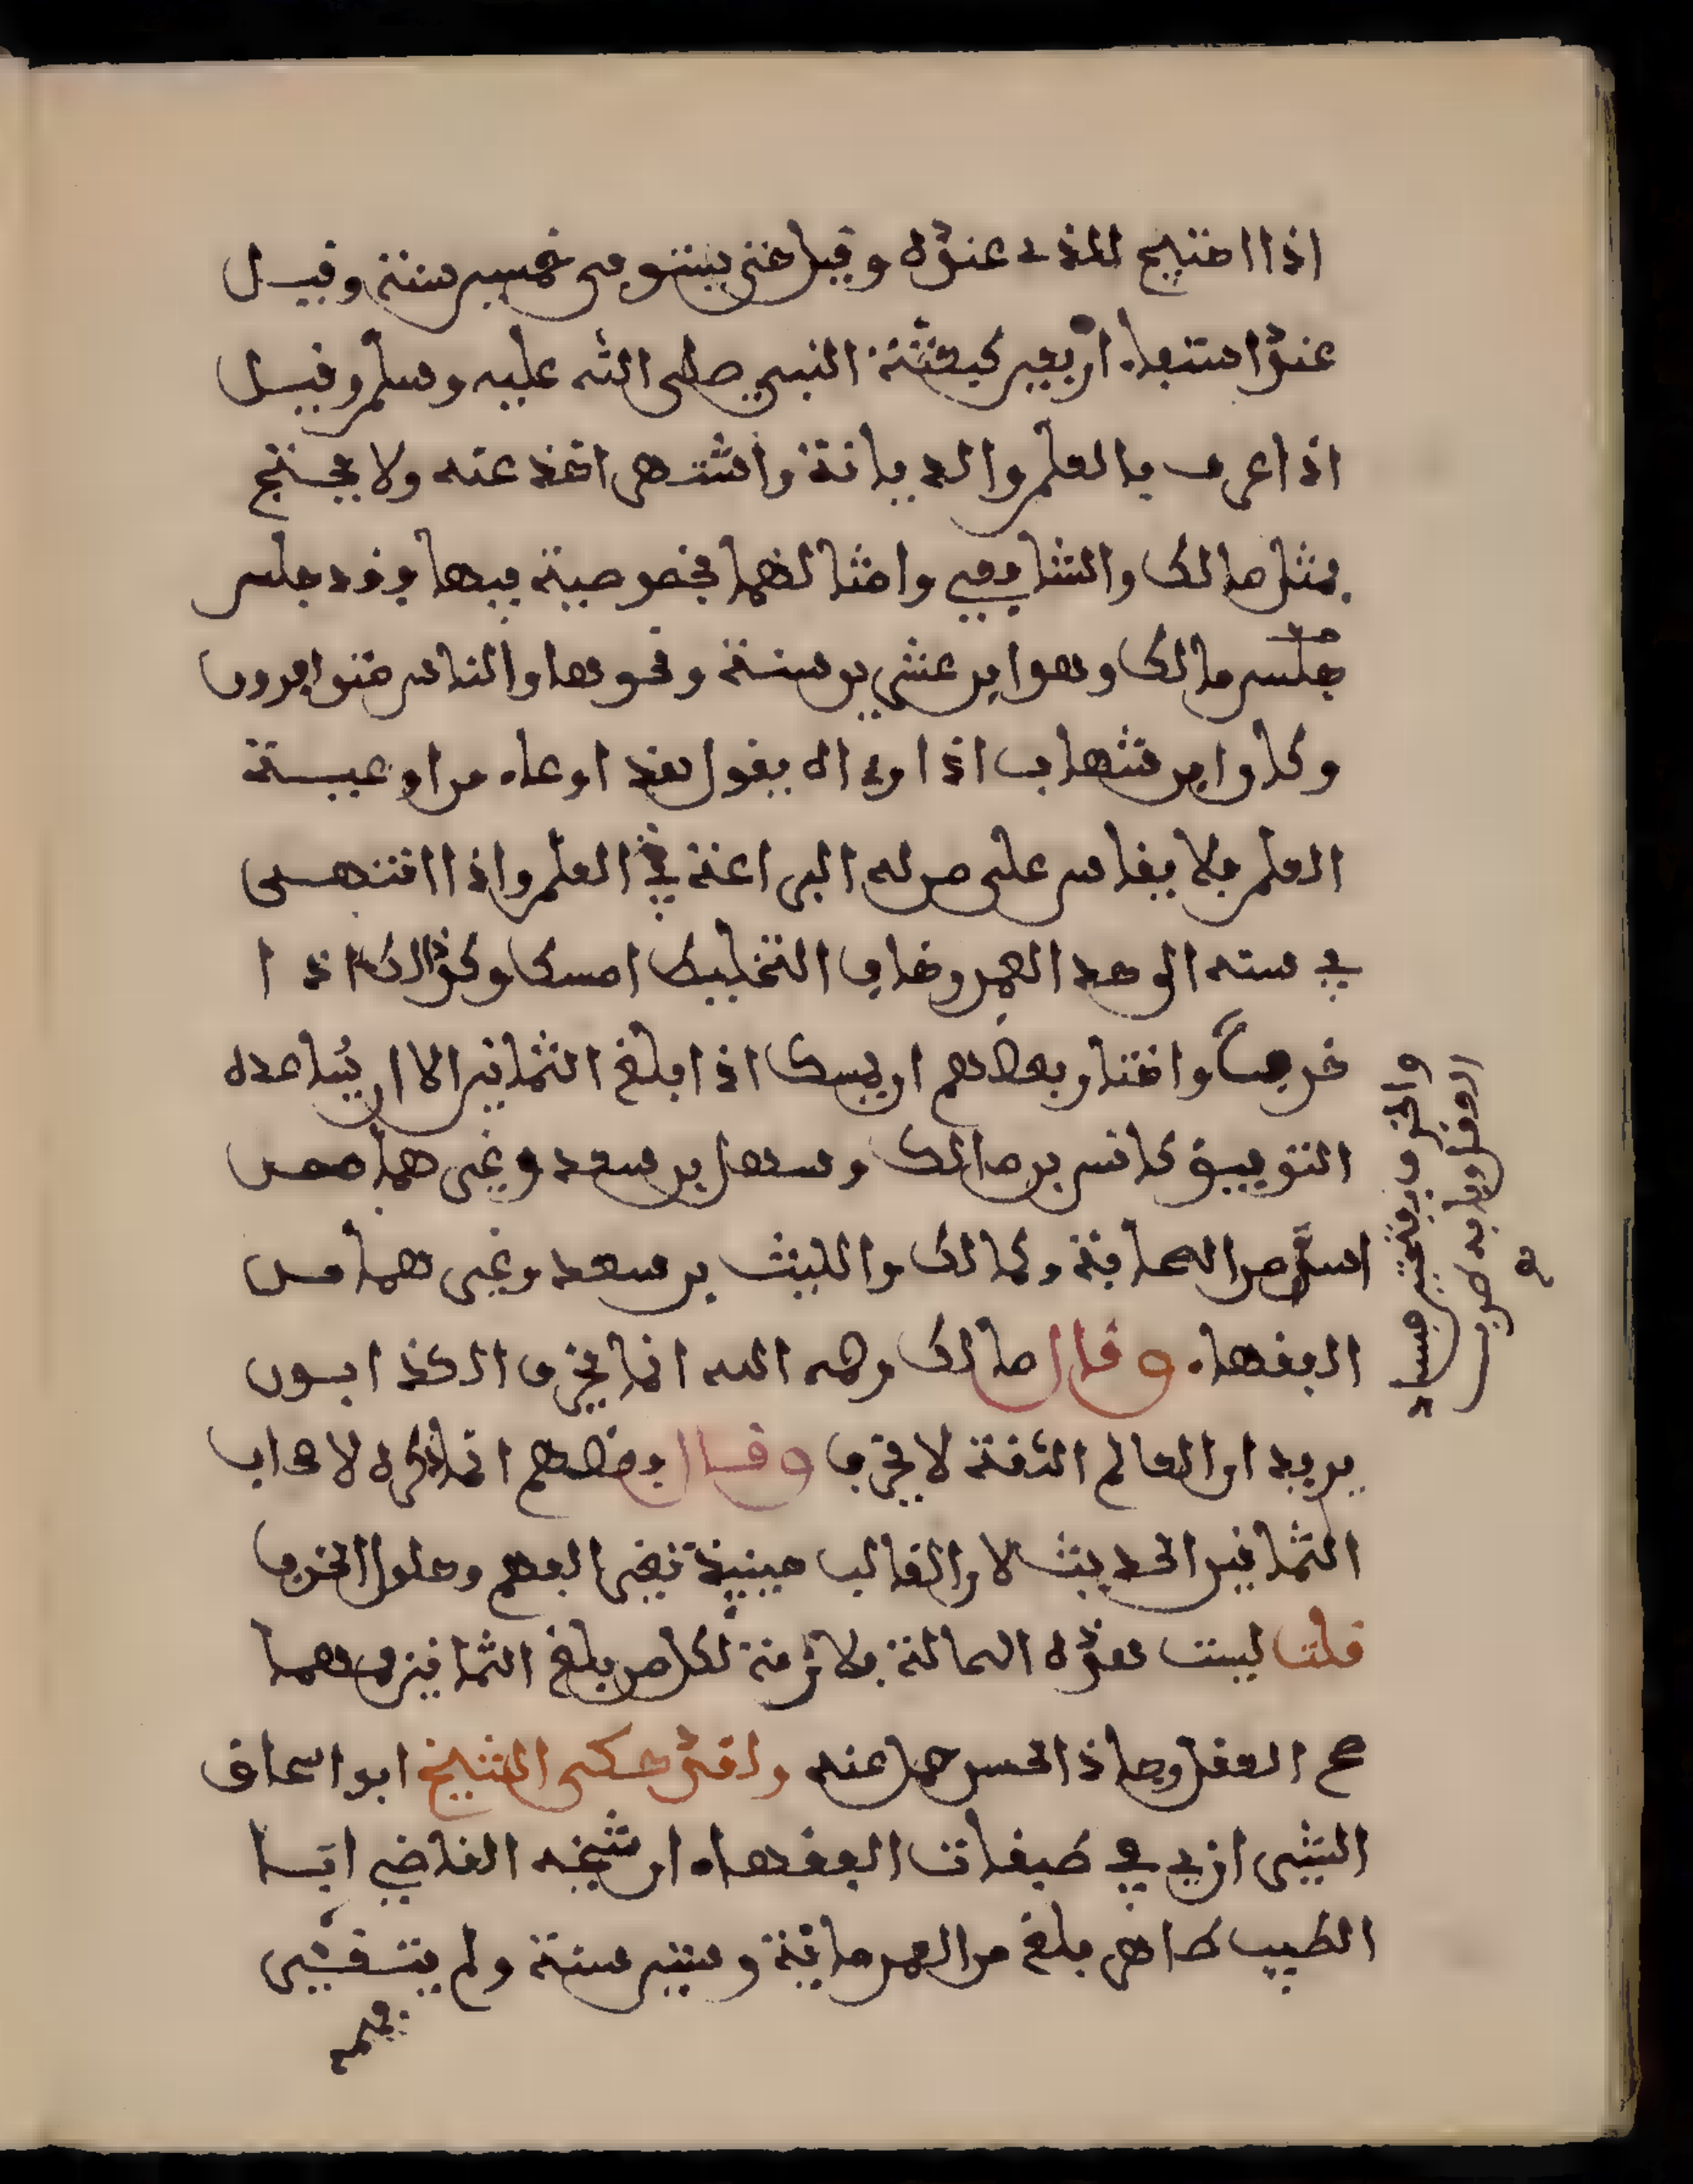 اذا احتيج للذي عنده وقيل حتى يستوفي خمسين سنة وقيل
عند استيفاء اربعين كبعثة النبي صلى الله عليه وسلم وقيل
اذا عرف بالعلم والديانة واشتهر اخذ عنه ولا يحتج
بمثل مالك والشافعي وامثالهما لخصوصية فيها فقد جلس
جلس مالك وهو ابن عشرين سنة ونحوها والناس متوافرون
وكان ابن شهاب اذا راه يقول هذا وعاء من اوعية
العلم فلا يقاس على من له البراعة في العلم واذا انتهى
في سنه الى حد الهرم وخاف التخليط امسك وكذلك اذا
خرف واختار بعضهم ان يمسك اذا بلغ الثمانين الا ان يساعده
التوفيق كانس بن مالك وسهل بن سعد وغيرهما ممن
اسن من الصحابة وكمالك والليث بن سعد وغيرهما من
الفقهاء وقال مالك رحمه الله انما يخرف الكذابون
يريد ان العالم الثقة لا يخرف وقال بعضهم انما كره لاصحاب
الثمانين الحديث لان الغالب حينيذ تغير الفهم وحلول الخرف
قلت ليست هذه الحالة بلازمة لكل من بلغ الثمانين فمهما
صح العقل وجاد الحس حمل عنه ولقد حكى الشيخ ابو اسحاق
الشيرازي في طبقات الفقهاء ان شيخه القاضي ابا
الطيب طاهر بلغ من العمر ماية وستين سنة ولم يتغير
فهمه
والخرف بفتحتين فساد
العقل وبابه طرب